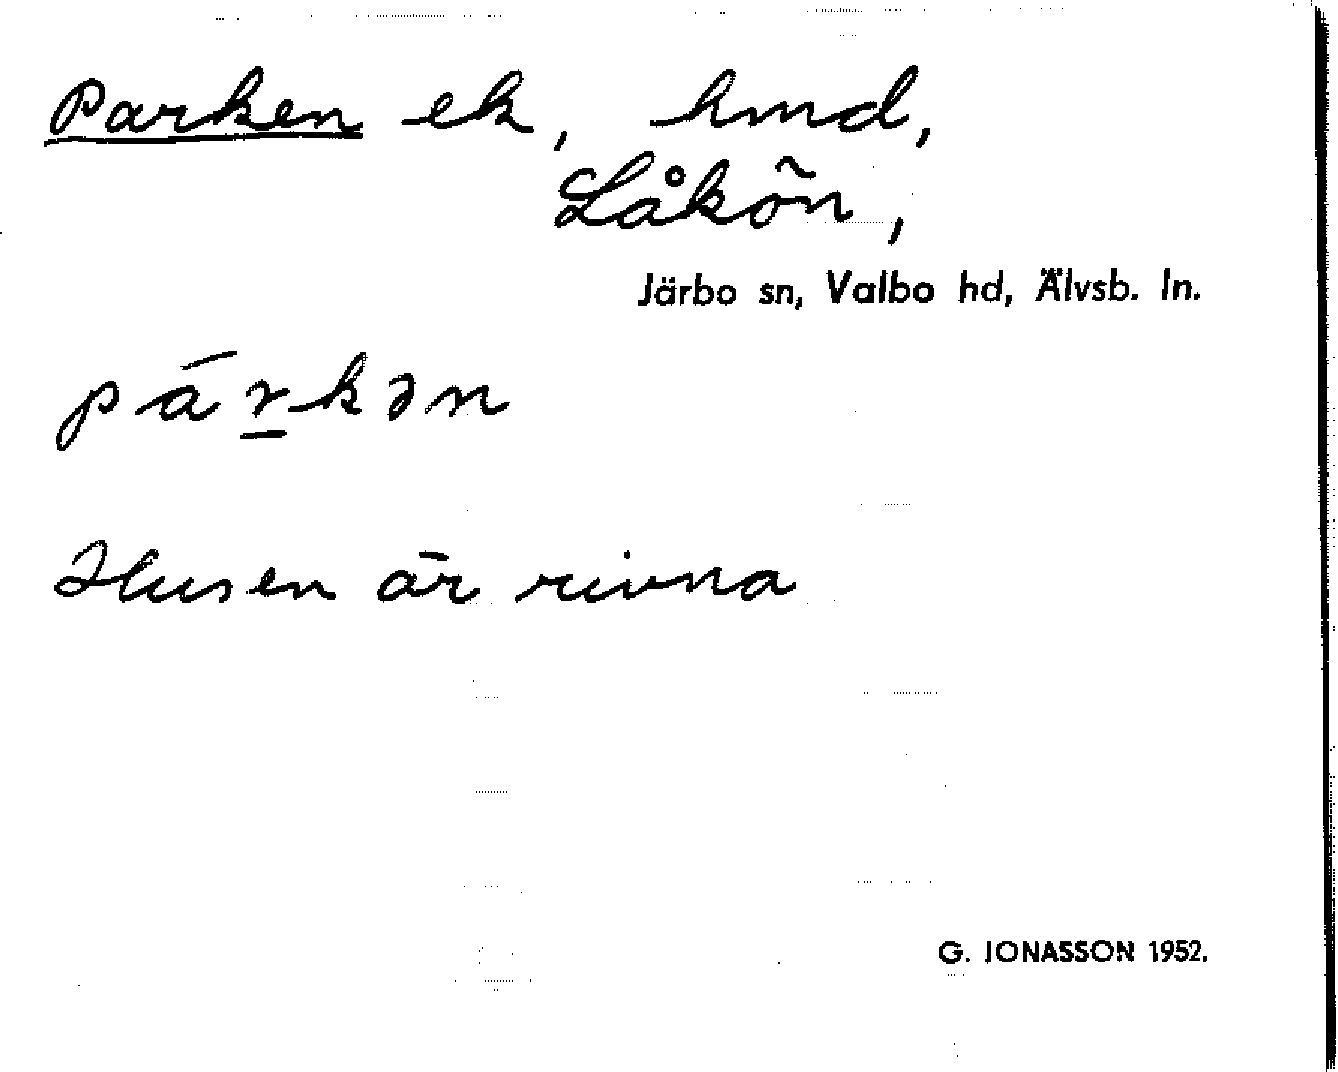 Parken ek, hmd,
Låkön,
Järbo sn, Valbo hd, Älvsb. ln.
párkən
Husen är rivna
G. JONASSON 1952.